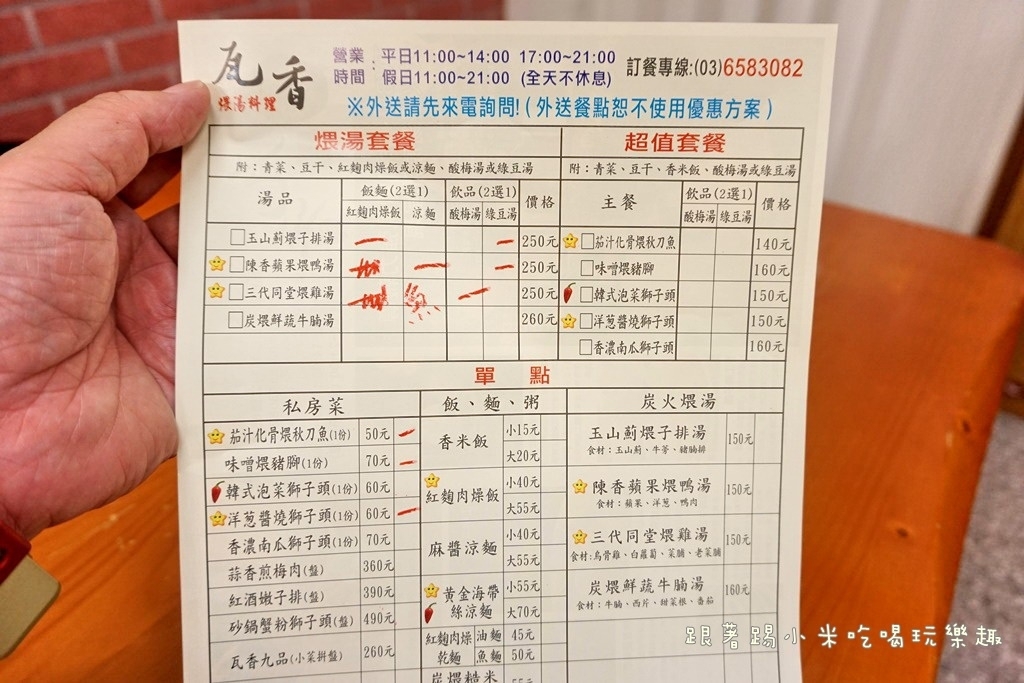 瓦香
煨湯料理
營業時間：平日11:00~14:00 17:00~21:00
假日11:00~21:00 (全天不休息)
訂餐專線:(03)6583082
※外送請先來電詢問!(外送餐點恕不使用優惠方案)
煨湯套餐
附：青菜、豆干、紅麴肉燥飯或涼麵、酸梅湯或綠豆湯
湯品 飯麵(2選1) 飲品(2選1) 價格
紅麴肉燥飯 涼麵 酸梅湯 綠豆湯
玉山薊煨子排湯 250元
陳香蘋果煨鴨湯 250元
三代同堂煨雞湯 250元
炭煨鮮蔬牛腩湯 260元
超值套餐
附：青菜、豆干、香米飯、酸梅湯或綠豆湯
主餐 飲品(2選1) 價格
酸梅湯 綠豆湯
茄汁化骨煨秋刀魚 140元
味噌煨豬腳 160元
韓式泡菜獅子頭 150元
洋蔥醬燒獅子頭 150元
香濃南瓜獅子頭 160元
單 點
私房菜
茄汁化骨煨秋刀魚(1份) 50元
味噌煨豬腳(1份) 70元
韓式泡菜獅子頭(1份) 60元
洋蔥醬燒獅子頭(1份) 60元
香濃南瓜獅子頭(1份) 70元
蒜香煎梅肉(盤) 360元
紅酒嫩子排(盤) 390元
砂鍋蟹粉獅子頭(盤) 490元
瓦香九品(小菜拼盤) 260元
飯、麵、粥
香米飯 小15元
大20元
紅麴肉燥飯 小40元
大55元
麻醬涼麵 小40元
大55元
黃金海帶絲涼麵 小55元
大70元
紅麴肉燥乾麵 油麵 45元
魚麵 50元
炭煨糙米
炭火煨湯
玉山薊煨子排湯 150元
食材：玉山薊、牛蒡、豬腩排
陳香蘋果煨鴨湯 150元
食材：蘋果、洋蔥、鴨肉
三代同堂煨雞湯 150元
食材：烏骨雞、白蘿蔔、菜脯、老菜脯
炭煨鮮蔬牛腩湯 160元
食材：牛腩、西芹、甜菜根、番茄
跟著踢小米吃喝玩樂趣